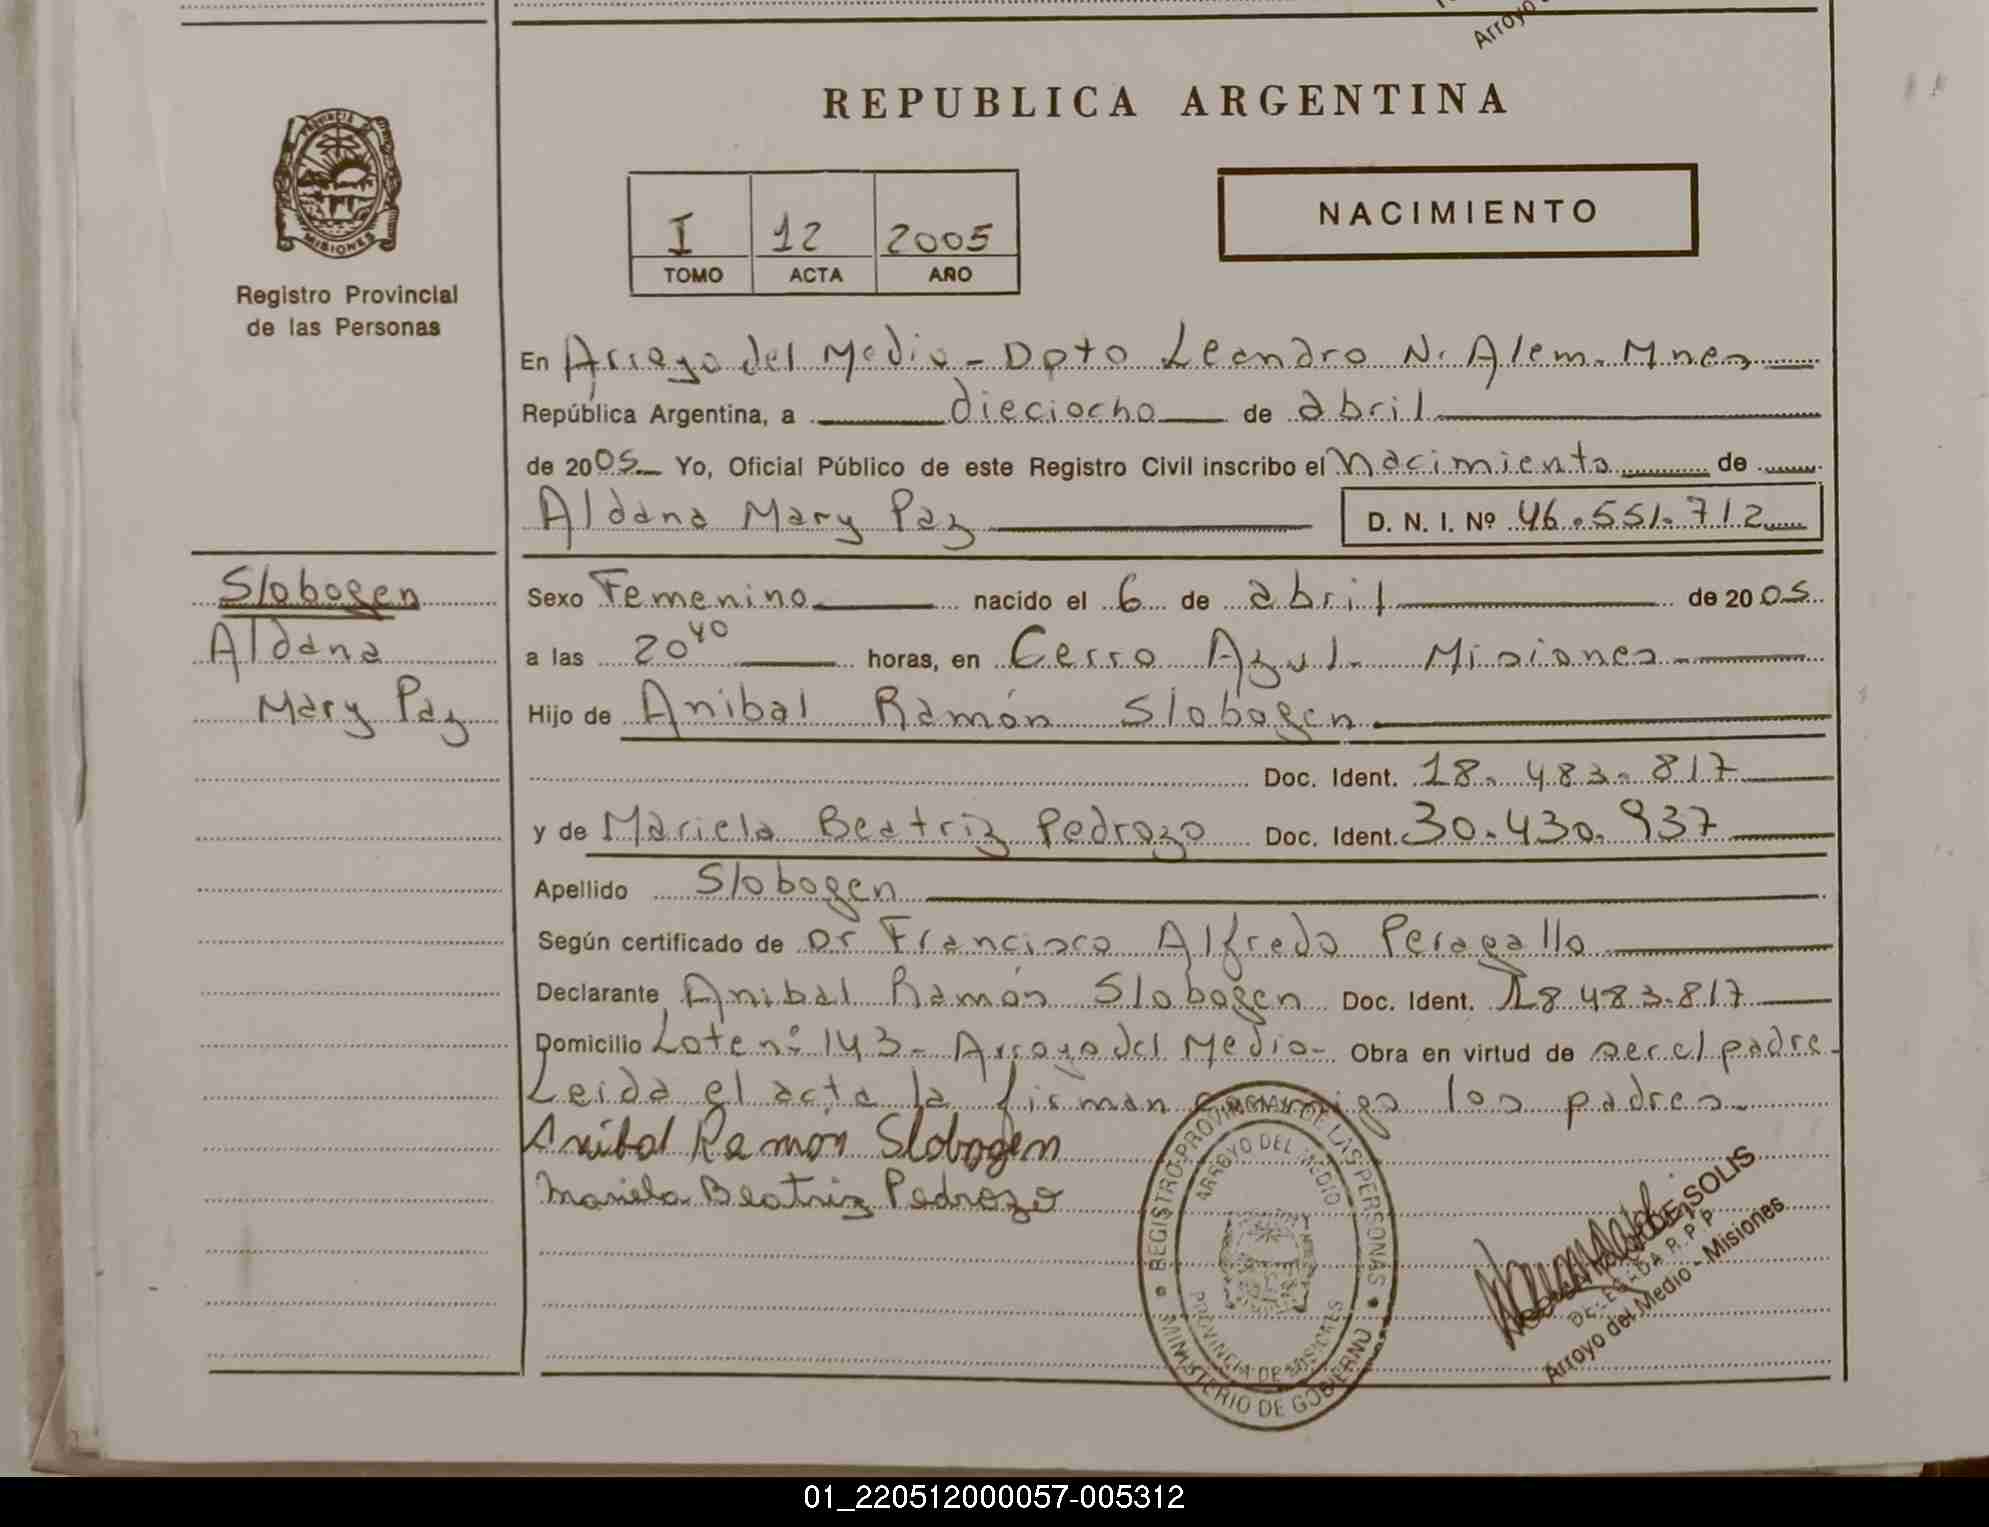 Arroyo
REPUBLICA ARGENTINA
PROVINCIA DE
MISIONES
Registro Provincial
de las Personas
I 12 2005
TOMO ACTA AÑO
NACIMIENTO
En Arroyo del Medio - Dpto Leandro N. Alem. Mnes
República Argentina, a dieciocho de abril
de 2005 Yo, Oficial Público de este Registro Civil inscribo el Nacimiento de
Aldana Mary Paz D. N. I. Nº 46.551.712
Slobogen
Aldana
Mary Paz
Sexo Femenino nacido el 6 de abril de 2005
a las 20 40 horas, en Cerro Azul - Misiones
Hijo de Anibal Ramón Slobogen
Doc. Ident. 18.483.817
y de Mariela Beatriz Pedrozo Doc. Ident. 30.430.937
Apellido Slobogen
Según certificado de Dr Francisco Alfredo Peragallo
Declarante Anibal Ramón Slobogen Doc. Ident. 18.483.817
Domicilio Lote nº 143 - Arroyo del Medio - Obra en virtud de ser el padre -
Leida el acta la firman conmigo los padres
Anibal Ramón Slobogen
Mariela Beatriz Pedrozo
REGISTRO PROVINCIAL DE LAS PERSONAS
ARROYO DEL MEDIO
PROVINCIA DE MISIONES
MINISTERIO DE GOBIERNO
DE SOLIS
DELEGADA R.P.P.
Arroyo del Medio - Misiones
01_220512000057-005312